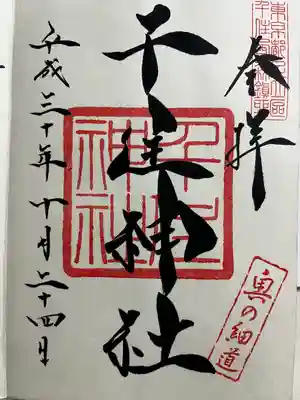 東京都足立区
奉拝
奥の細道
千住神社
千住
神社
平成三十年十月二十四日